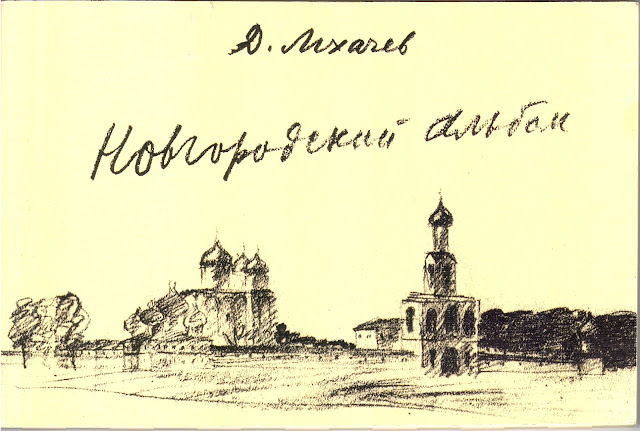 Д. Лихачев
Новгородский альбом